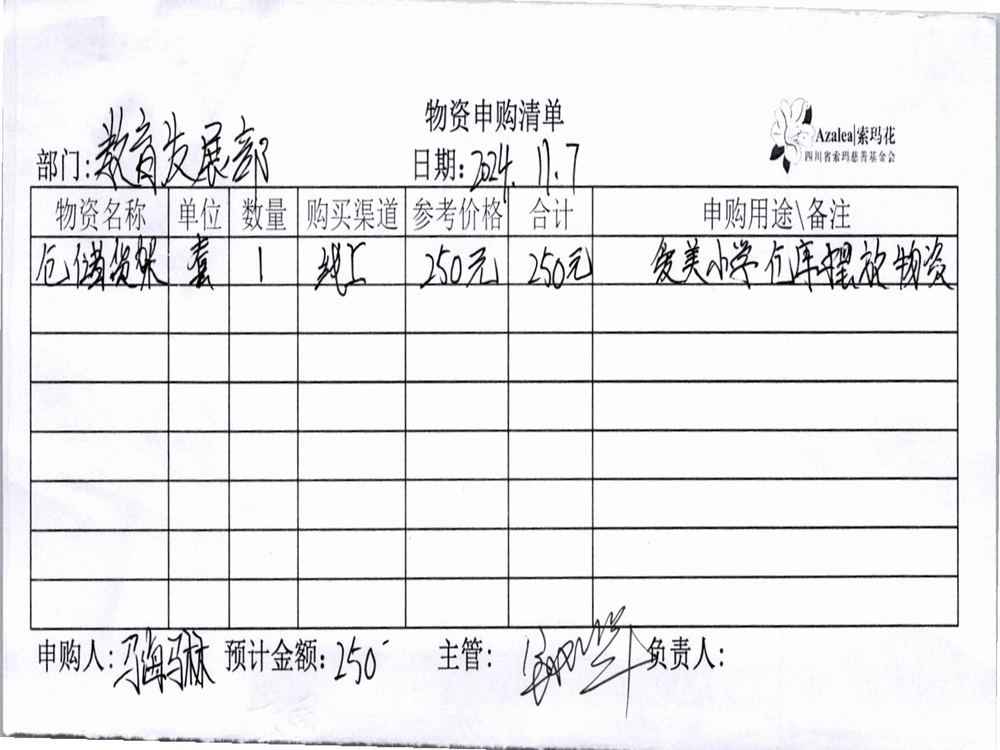 物资申购清单
Azalea|索玛花
四川省索玛慈善基金会
部门:教育发展部 日期:2024.11.7
物资名称 单位 数量 购买渠道 参考价格 合计 申购用途\备注
仓储货架 套 1 线上 250元 250元 爱美小学仓库摆放物资
申购人:马海马林 预计金额:250 主管: 负责人: